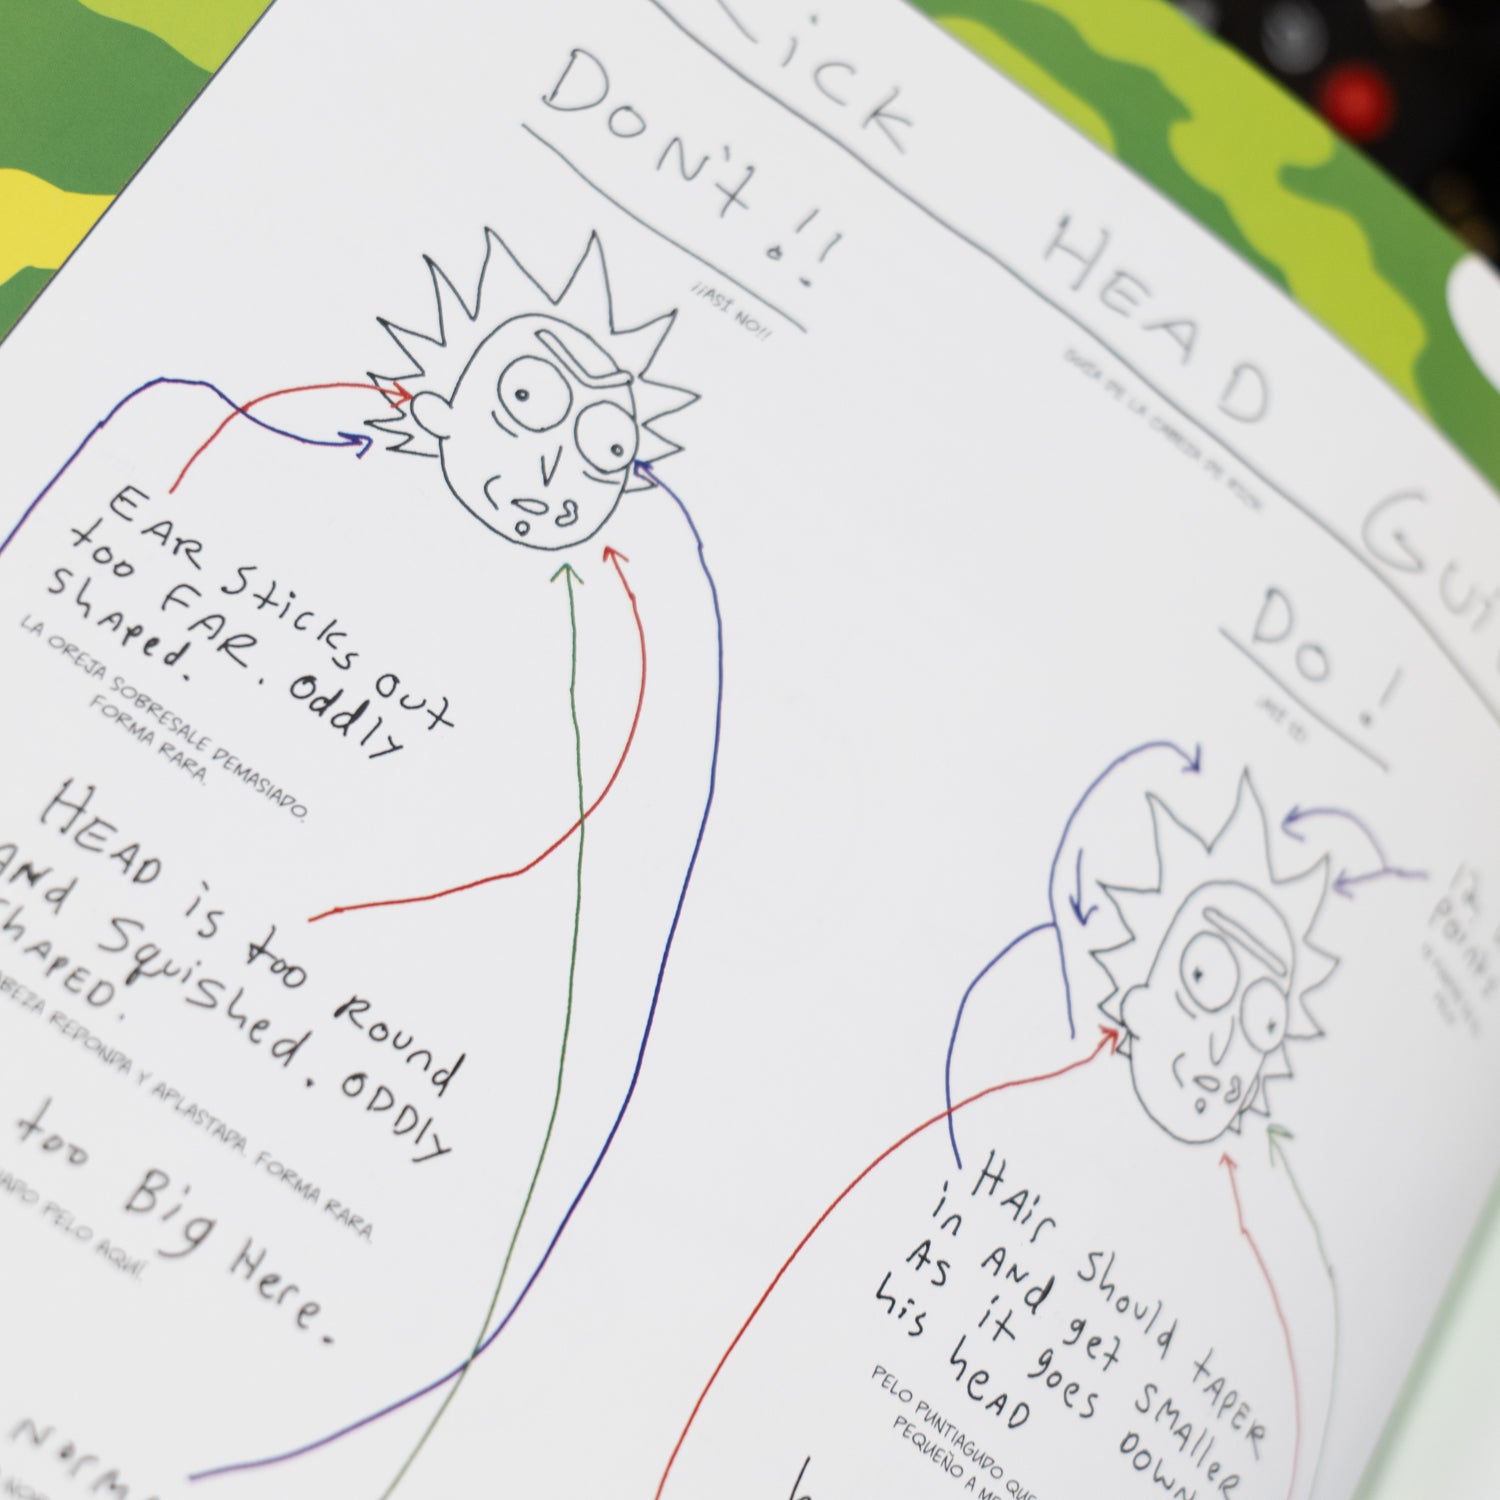 RICK HEAD
GUÍA DE LA CABEZA DE RICK
DON't!!
¡¡ASÍ NO!!
EAR Sticks out
too FAR. oddly
shAped.
LA OREJA SOBRESALE DEMASIADO.
FORMA RARA.
HEAD is too Round
AND SquiShed. ODDly
SHAPED.
REDONDA Y APLASTADA. FORMA RARA.
too Big Here.
PELO AQUÍ.
DO!
HAir Should tAPER
in AND get SMAller
AS it goes DOWN
his heAD
PELO PUNTIAGUDO QUE
PEQUEÑO A